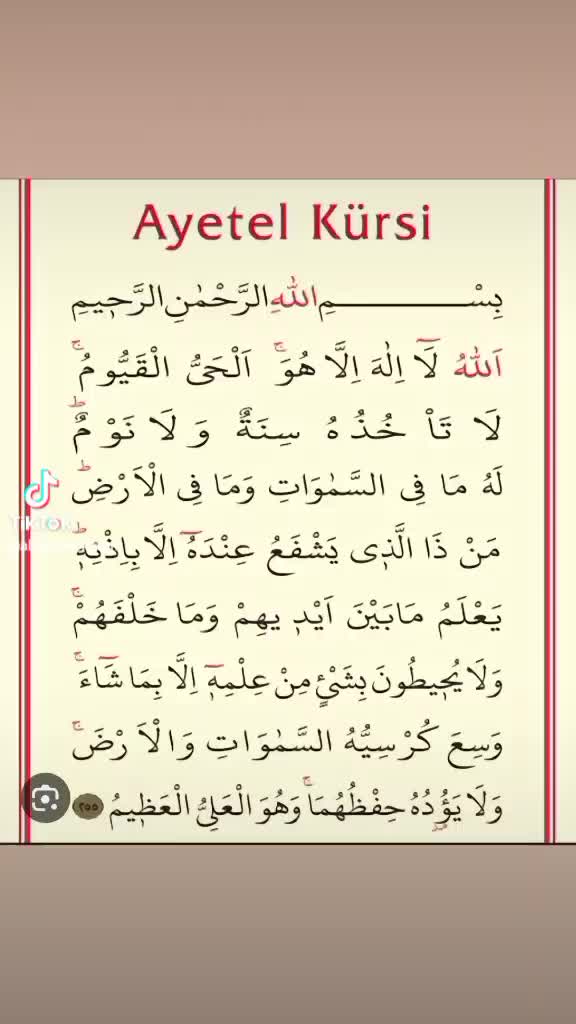 Ayetel Kürsi
بِسْــــــــــــمِ اللّٰهِ الرَّحْمٰنِ الرَّحٖيمِ
اَللّٰهُ لَٓا اِلٰهَ اِلَّا هُوَۚ اَلْحَىُّ الْقَيُّومُۚ
لَا تَاْ خُذُهُ سِنَةٌ وَ لَا نَوْمٌؕ
لَهُ مَا فِى السَّمٰوَاتِ وَمَا فِى الْاَرْضِؕ
مَنْ ذَا الَّذٖى يَشْفَعُ عِنْدَهُٓ اِلَّا بِاِذْنِهٖؕ
يَعْلَمُ مَابَيْنَ اَيْدٖيهِمْ وَمَا خَلْفَهُمْۚ
وَلَا يُحٖيطُونَ بِشَىْءٍ مِنْ عِلْمِهٖٓ اِلَّا بِمَا شَٓاءَۚ
وَسِعَ كُرْسِيُّهُ السَّمٰوَاتِ وَالْاَرْضَۚ
وَلَا يَؤُدُهُ حِفْظُهُمَاۚ وَهُوَ الْعَلِىُّ الْعَظٖيمُ ٢٥٥
TikTok